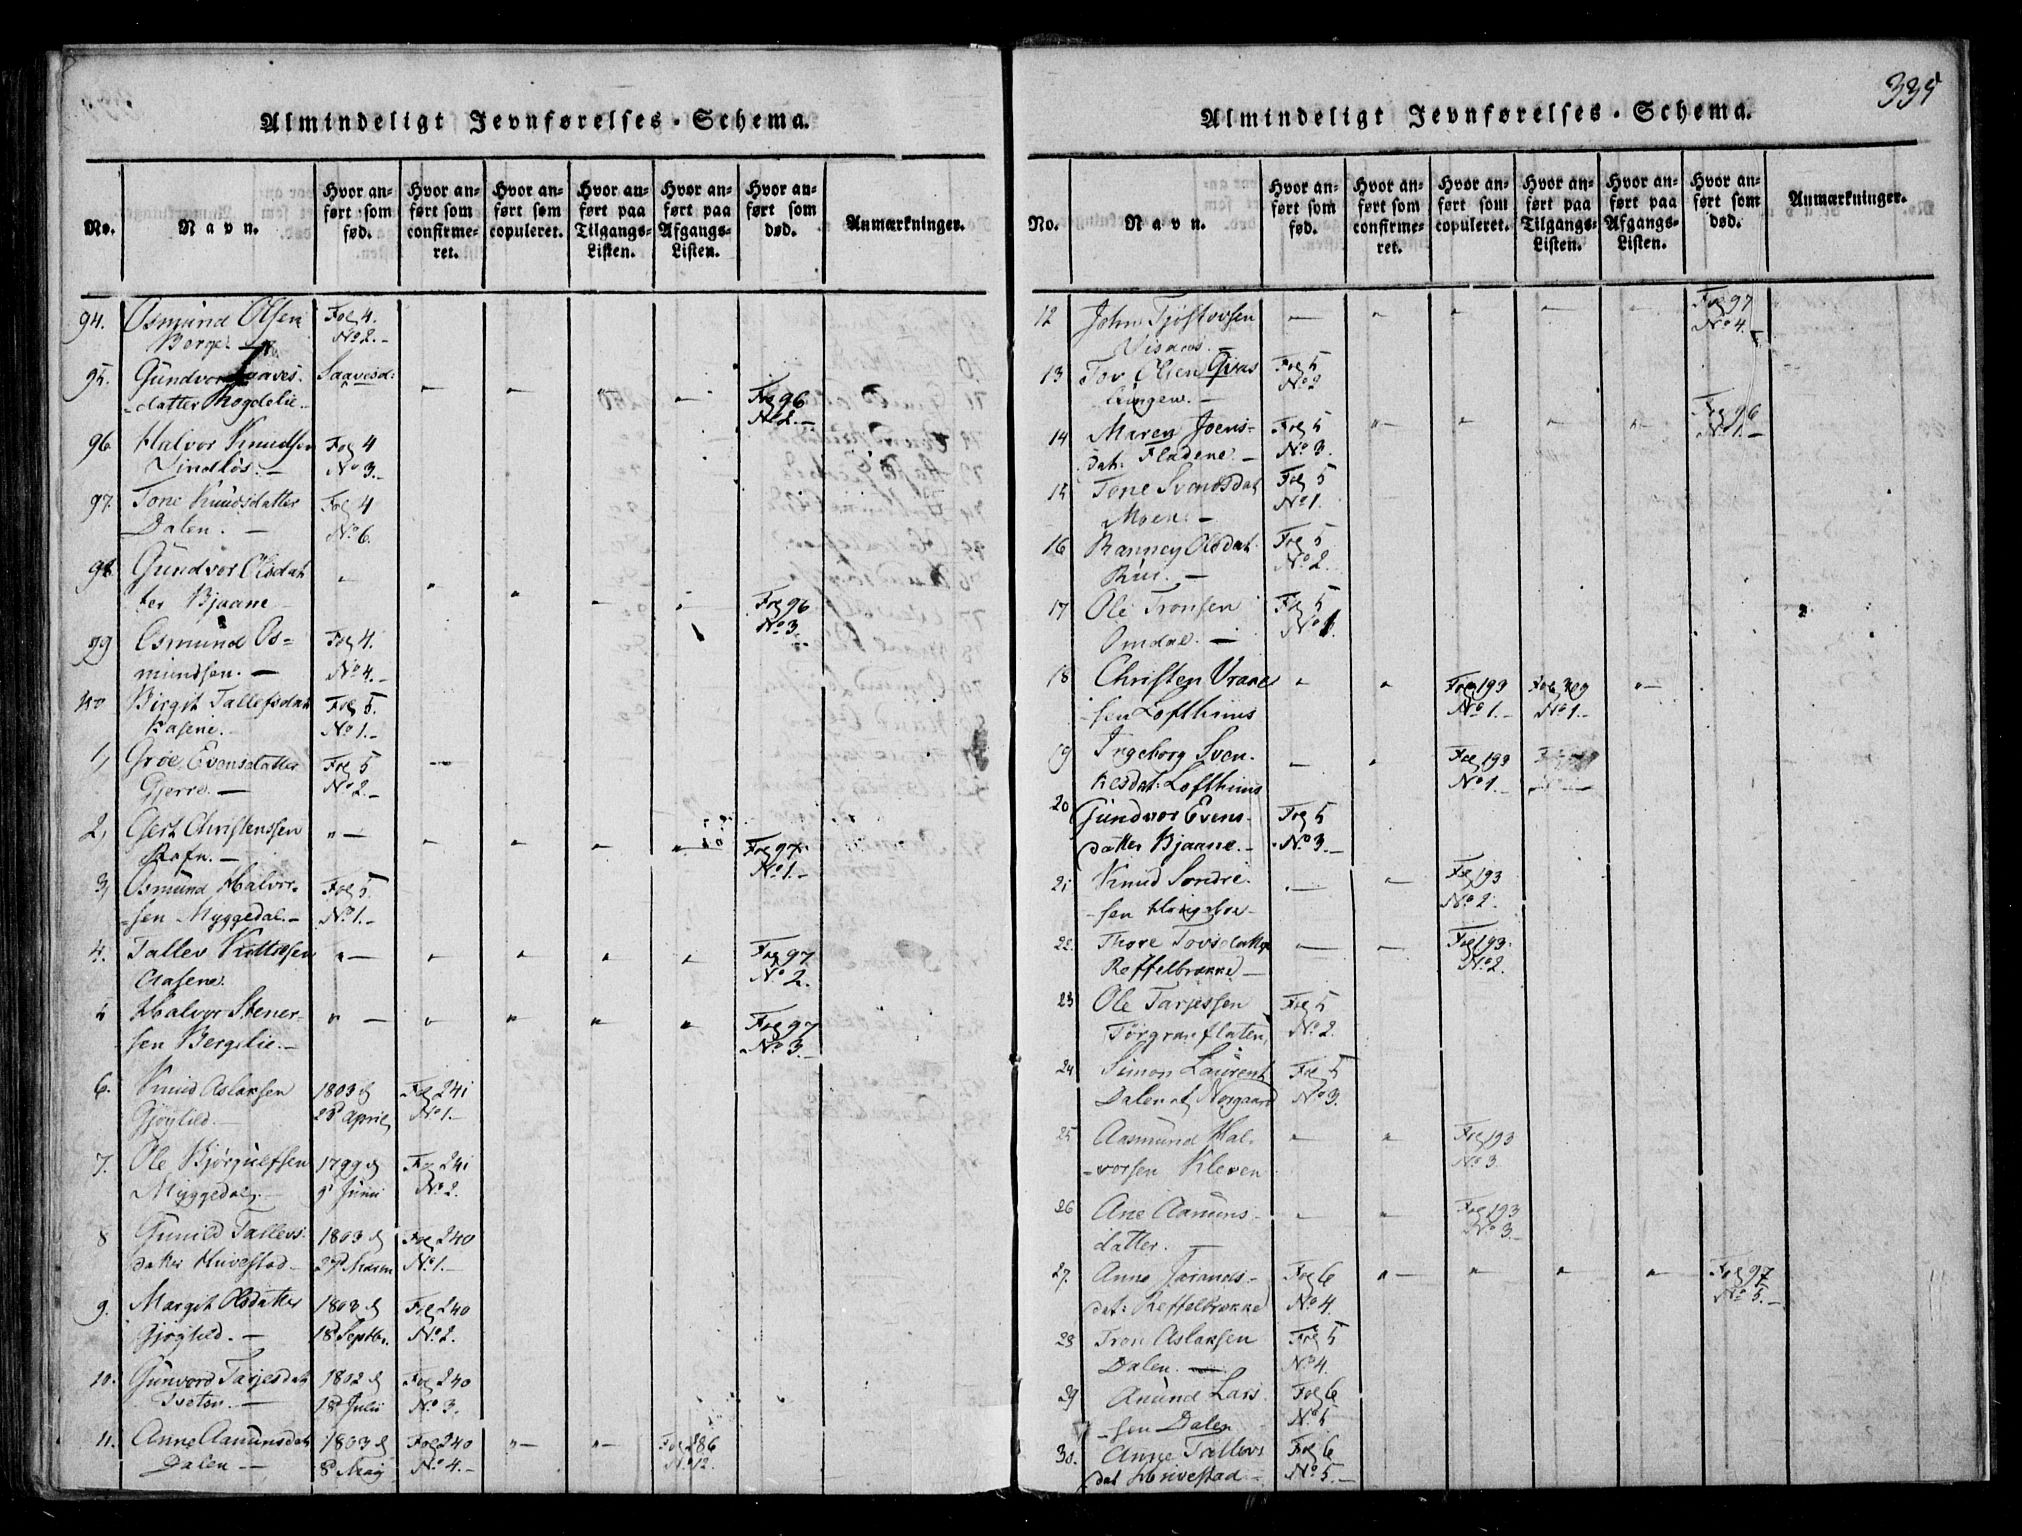 335
Almindeligt Jevnførelses-Schema.
No. Navn. Hvor anført som fød. Hvor anført som confirmeret. Hvor anført som copuleret. Hvor anført paa Tilgangs-Listen. Hvor anført paa Afgangs-Listen. Hvor anført som død. Anmærkninger.
94. Osmund Olsen Fol 4.
Borge No 2.-
95. Gundvor Saavesd:
datter Fol 96
No 2.-
96. Halvor Knudsen Fol 4
Vindløs.- No 3.-
97. Tone Knudsdatter Fol 4
Dalen.- No 6.
98. Gundvor Olsdat
ter Bjaane Fol 96
No 3.
99 Osmund Os= Fol 4.
mundsen.- No 4.-
100 Birgit Tallefsdat Fol 5.
Aasene.- No 1.-
1, Groe Evensdatter Fol 5
Gjerre.- No 2.-
2, Gert Christenssen
Rafn.- Fol 97
No 1.-
3, Osmund Halvor- Fol 5.
sen Myggedal.- No 1.-
4. Tallev Fol 97
Aasene. No 2.
5 Halvor Stener- Fol 97
sen Bergelie.- No 3.-
6. Knud Aslaksen 1803 d Fol 241
28 April No 1.-
7. Ole Bjørgulfsen 1799 d Fol 241
Myggedal.- 9 Junii No 2.
8 Gunild Tallevs: 1803 d Fol 240
datter Huvestad- No 1.-
9. Margit Olsdatter 1803 d Fol 240
18 Septbr. No 2.-
10. Gunvord Tarjesdat 1802 d Fol 240
Tveten.- 18 Julii No 3.
11. Anne Aamunsdat 1803 d Fol 240 Fol 286
Dalen- 8 May No 4.- No 12.
Almindeligt Jevnførelses-Schema.
No. Navn. Hvor anført som fød. Hvor anført som confirmeret. Hvor anført som copuleret. Hvor anført paa Tilgangs-Listen. Hvor anført paa Afgangs-Listen. Hvor anført som død. Anmærkninger.
12 John Tjøstovsen Fol 97
No 4.
13 Tov Olsen Fol 5
No 2
14 Maren Joens- Fol 5 Fol 96
dat: Fladene.- No 3. No 1.-
15 Tone Svendsdat Fol 5
Moen.- No 1.
16 Ranney Olsdat Fol 5
No 2.
17 Ole Tronsen Fol 5
Omdal.- No 1.
18 Christen Vraae Fol 193 Fol 309
sen Lofthuus No 1.- No 1.-
19 Ingeborg Sven- Fol 193
kesdat: Lofthuus No 1.-
20 Gundvor Evens- Fol 5
datter Bjaane.- No 3.-
21 Knud Sondre- Fol 193
sen No 2.
22. Thore Tovsdatter Fol 193
Reffelbrække- No 2.
23 Ole Tarjessen Fol 5
No 2.
24 Simon Laurent Fol 5
Dalen No 3.
25 Aasmund Hal- Fol 193
vorsen Kleven No 3.
26 Ane Aamuns- Fol 193
datter.- No 3.-
27. Anne Fol 6 Fol 97
dat: Reffelbrække No 4. No 5.-
28 Tron Aslaksen Fol 5
Dalen.- No 4.
29 Anund Lars- Fol 6
sen Dalen No 5
30. Anne Tallevs Fol 6
dat Huvestad.- No 5.-